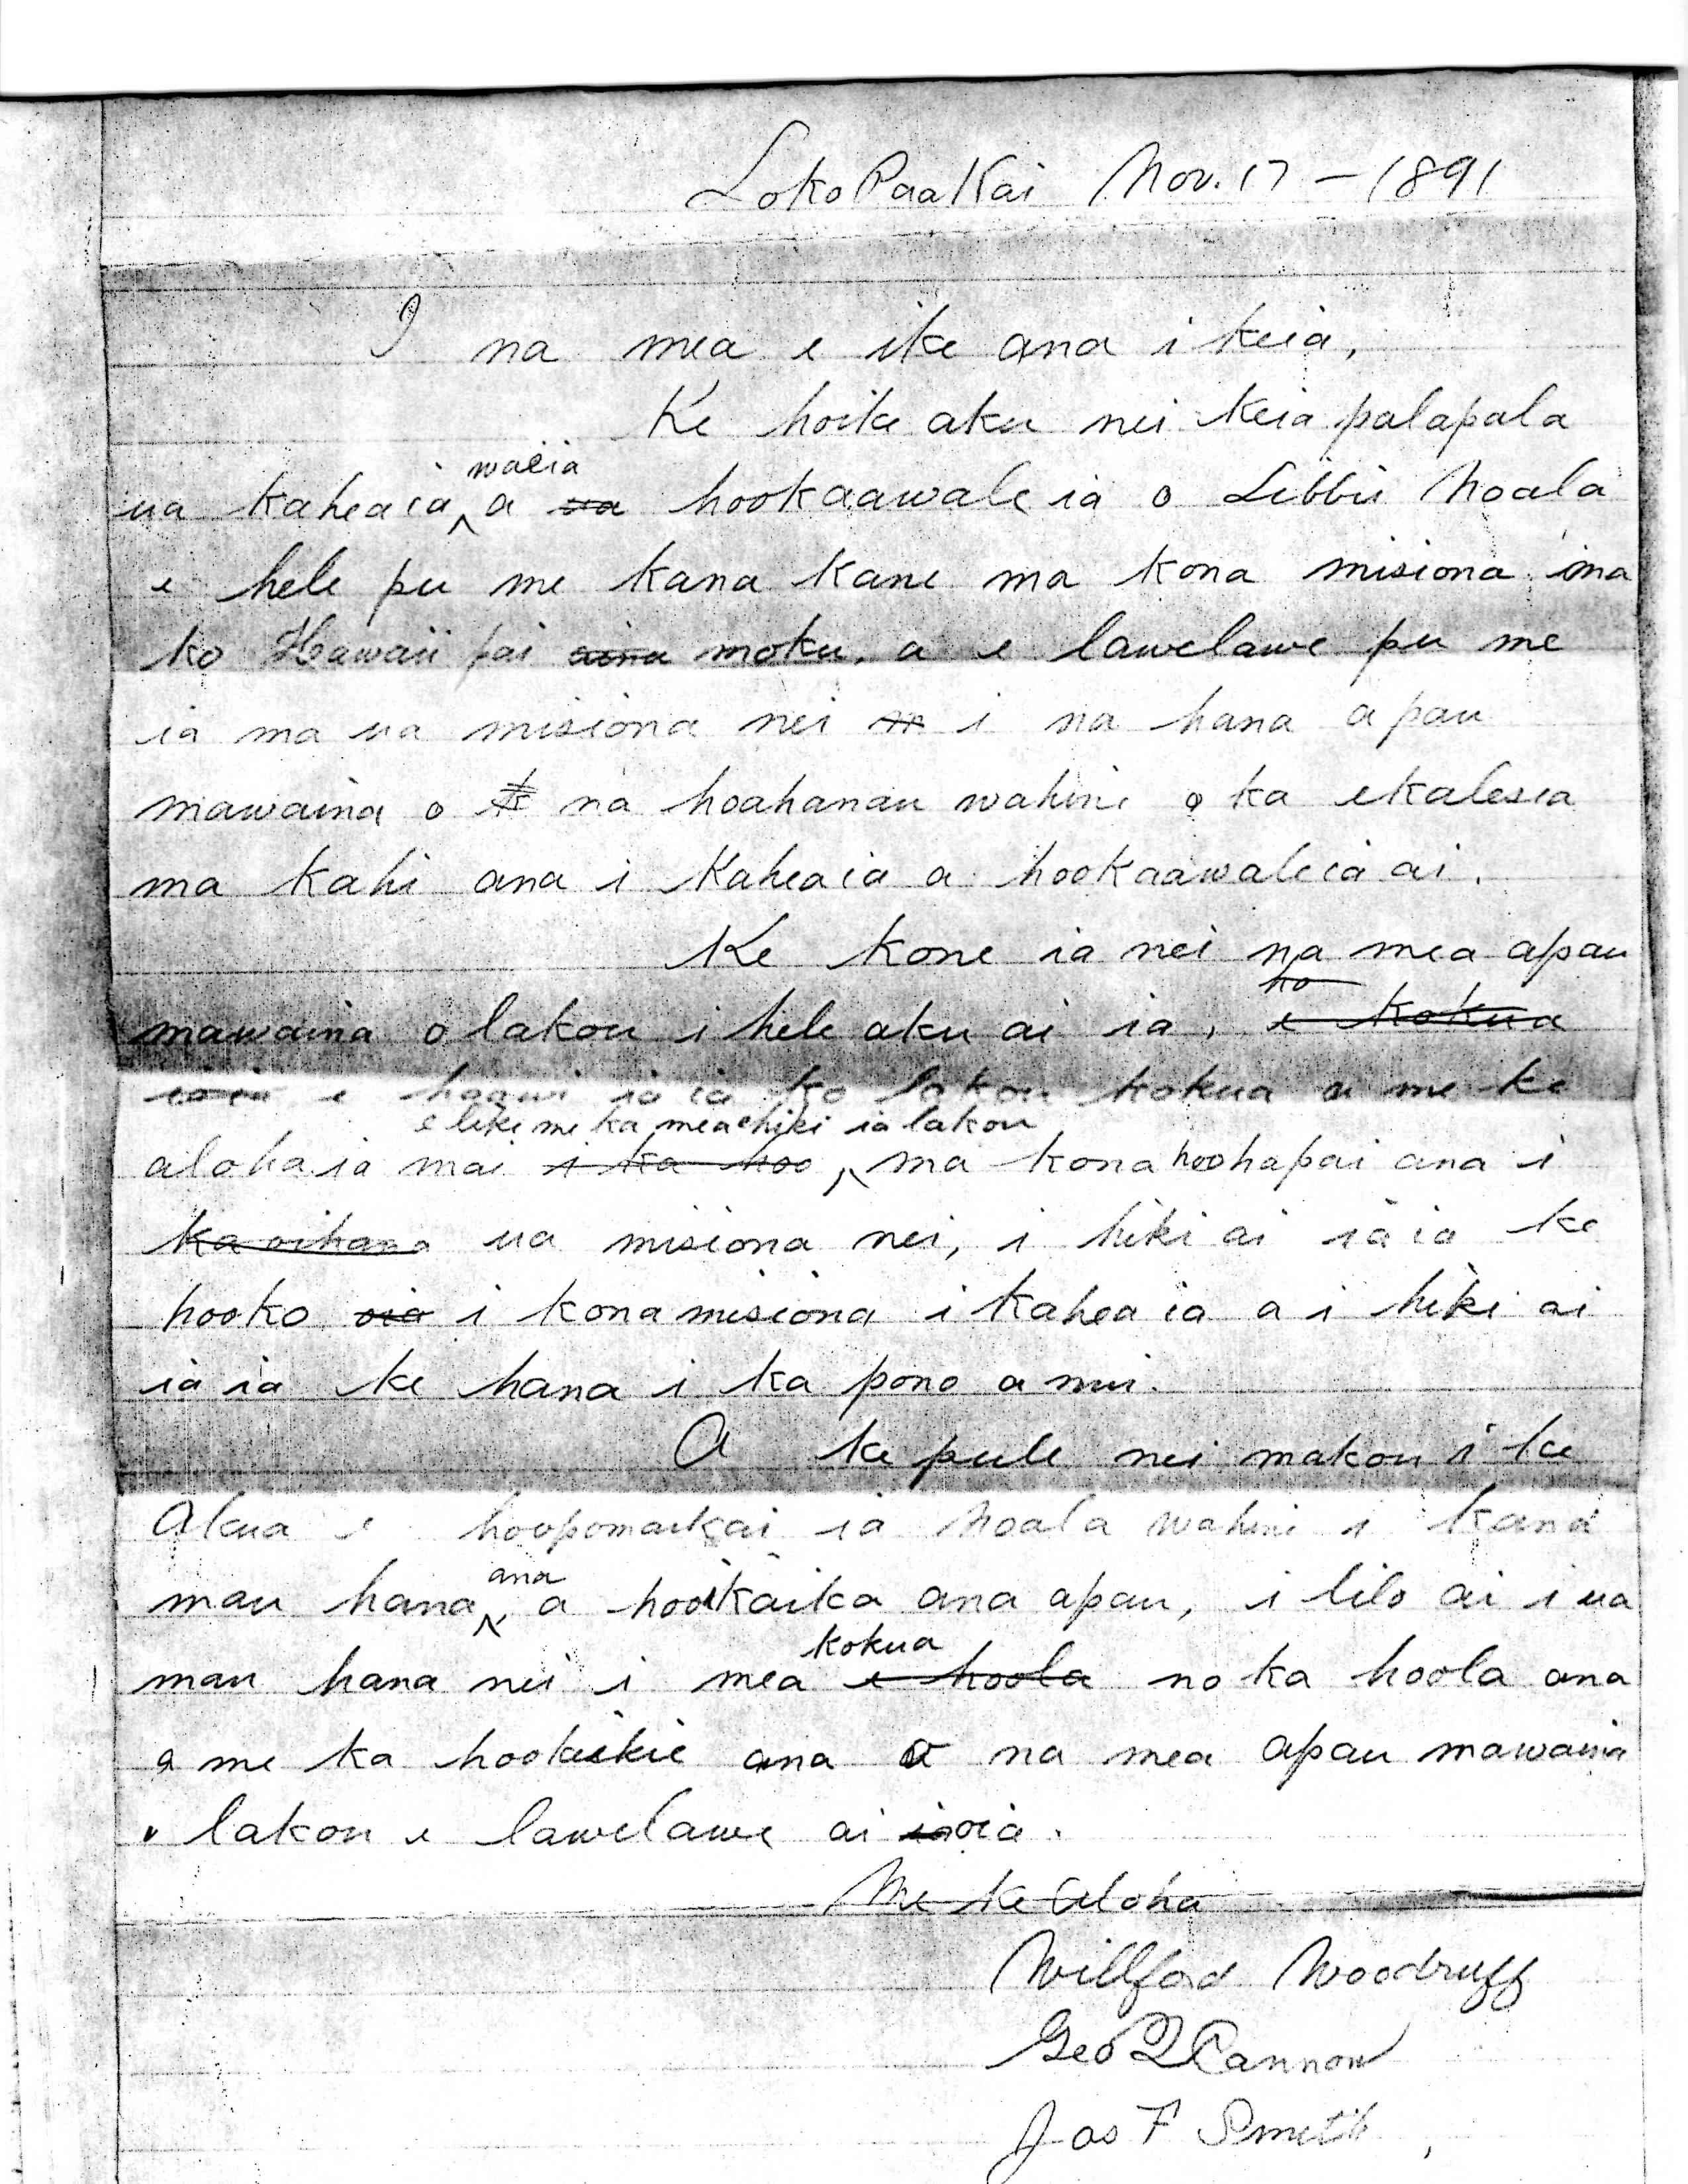 Loko PaaKai Nov. 17 - 1891
I na mea e ike ana i keia,
Ke hoike aku nei keia palapala
waeia
ua kaheaia a ua hookaawale ia o Libbie Noala
e hele pu me kana kane ma kona misiona ma
ko Hawaii pai aina moku. a e lawelawe pu me
ia ma ua misiona nei i na hana apau
mawaina o na hoahanau wahine o ka ekalesia
ma kahi ana i Kaheaia a hookaawaleia ai.
Ke kone ia nei na mea apau
no
mawaina o lakou i hele aku ai ia, e kokua
iaia e haawi iaia ko lakou kokua a me ke
e like me ka mea hiki ia lakou
alohaia mai i ka hoo, ma kona hoohapai ana i
ka oihana ua misiona nei, i hiki ai iaia ke
hooko oia i kona misiona i kahea ia a i hiki ai
ia ia ke hana i ka pono a nui.
A ke pule nei makou i ke
Akua e hoopomaikai ia Noala wahine i kana
ana
mau hana, a hooikaika ana apau, i lilo ai i ua
kokua
mau hana nei i mea e hoola no ka hoola ana
a me ka hookiekie ana o na mea apau mawaina
o lakou e lawelawe ai oia.
Me ke Aloha
Willford Woodruff
Geo Q Cannon
Jos F Smith